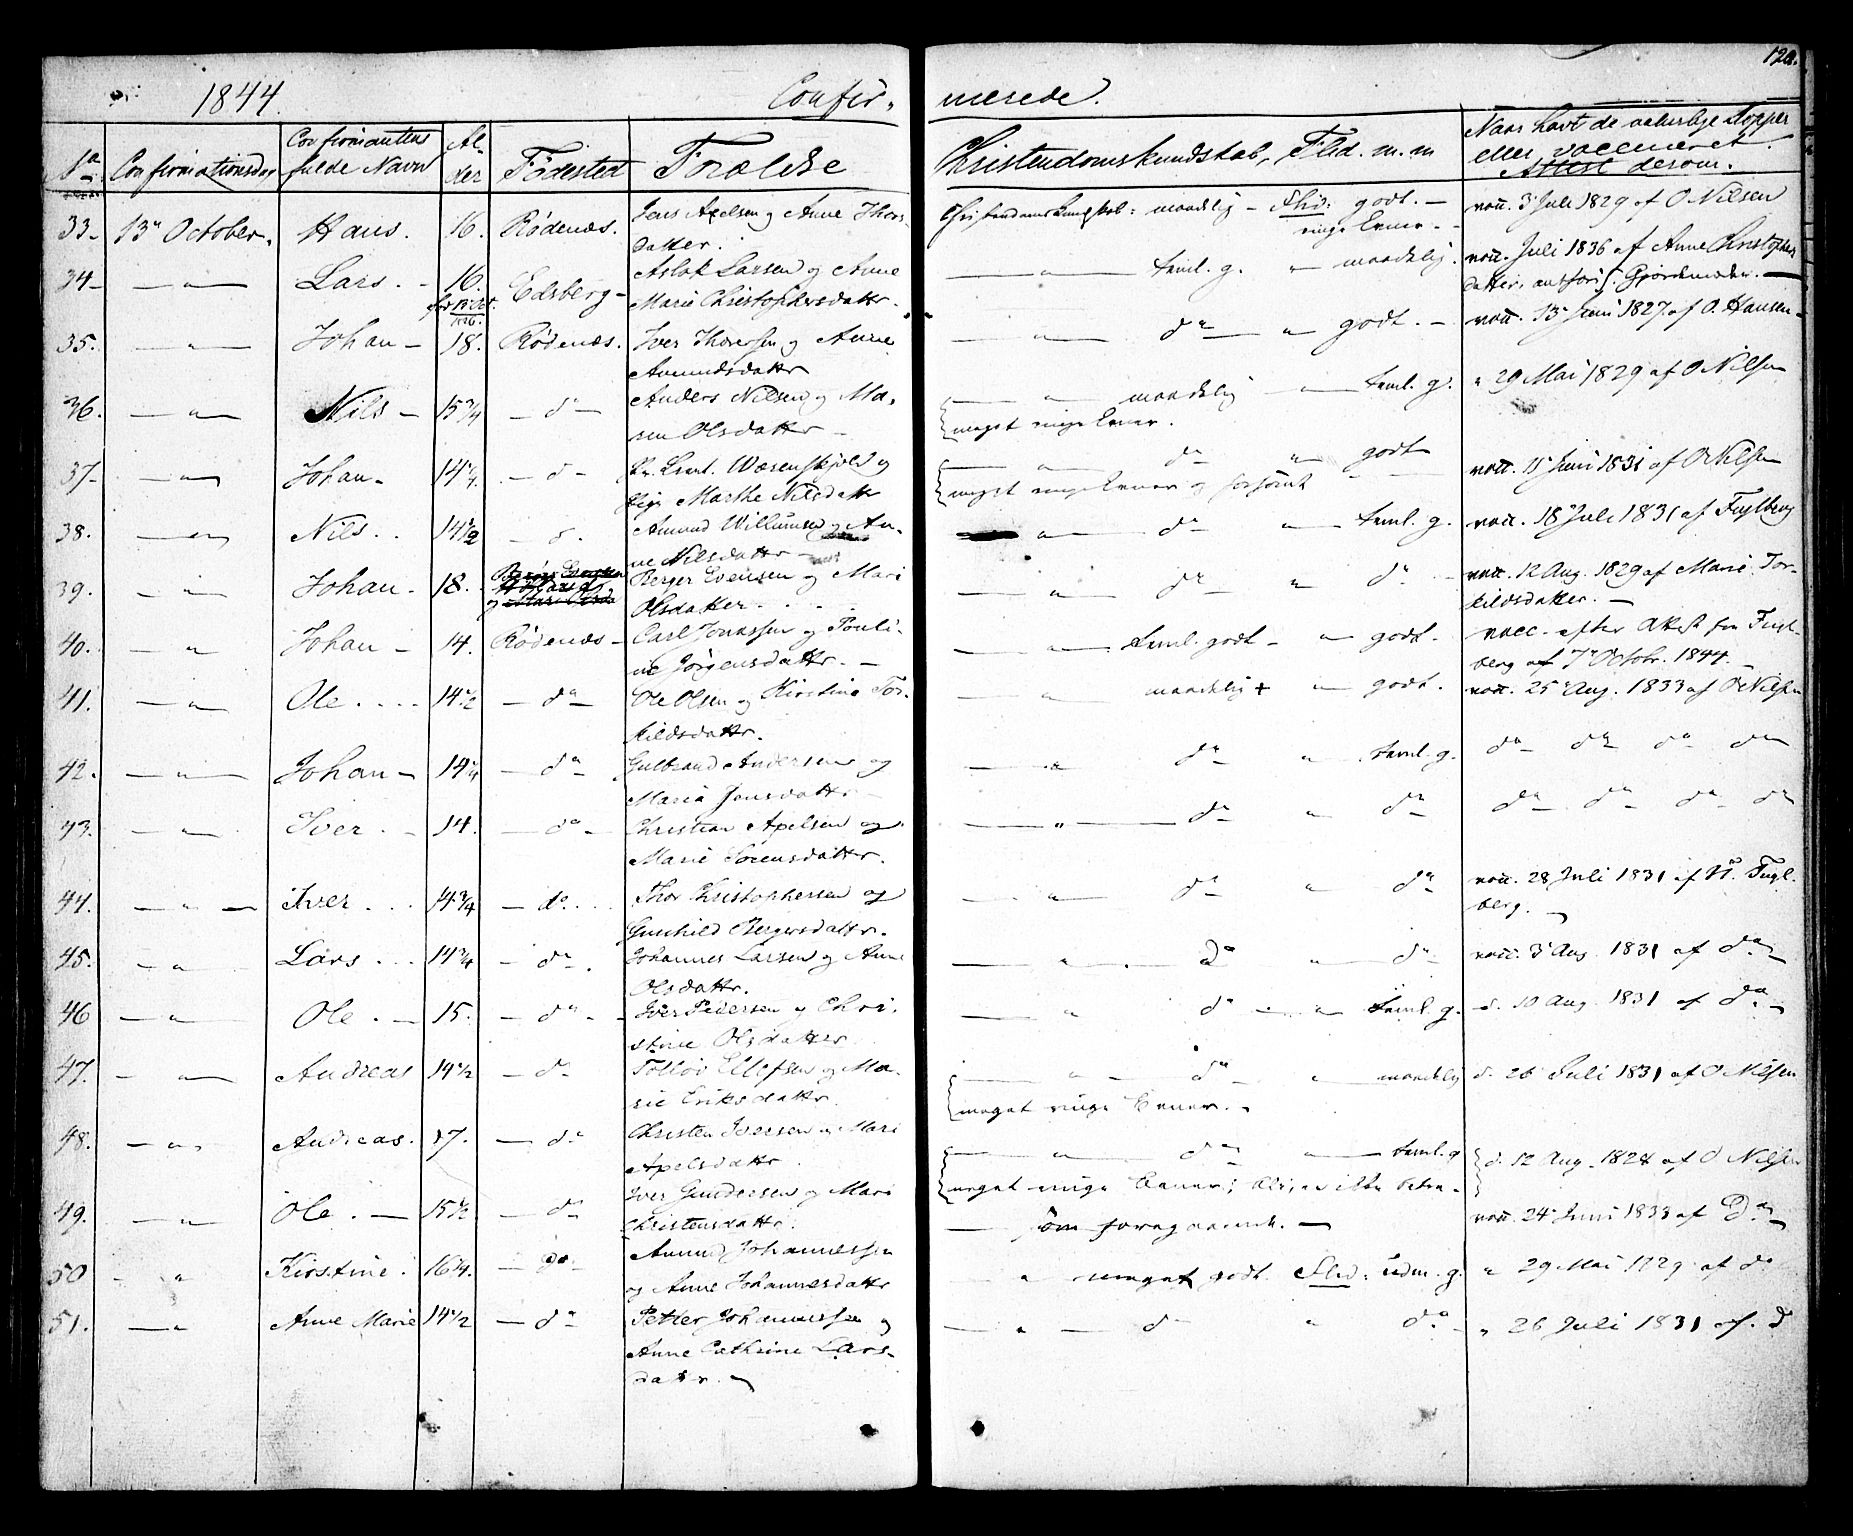 1844.
Confir-
merede.
120.
No
Confirmationsdag
Confirmantens
fulde Navn
Al-
der
Fødested
Forældre
Christendomskundskab, Flid. m. m
Naar havt de naturlige Kopper
eller vaccineret.
Attest derom.
33. 13de October. Hans. 16. Rødenæs. Jens Apelsen og Anne Thors-
datter.
Christendomskundskab: maadelig – Flid: godt. –
ringe Evner. –
vacc. 3 Juli 1829 af O Nilsen
34 – " – Lars. – 16. Edsberg – Aslak Larsen og Anne
Marie Christophersdattr.
– " – taml. g. " maadelig.
vacc. Juli 1836 af Anne Christophers
datter, Gjordemoder. –
35. – " – Johan – 18. Rødenæs. Iver Thoresen og Anne
Amundsdattr
– " – do – " godt. –
vacc. 13 Juni 1827 af O. Hansen –
36. – " – Nils – 15 3/4 – do – Anders Nilsen og Ma-
ren Olsdattr –
– " – maadelig – taml. g.
meget ringe Evner.
" 29 Mai 1829 af O Nilsen
37 – " – Johan – 14 1/4 – d –
Marthe Nilsdattr
– " – do " godt
meget ringe Evner og forsømt
vacc. 11 Juni 1831 af O Nilsen
38. – " – Nils. . 14 1/2 – d. Amund Willumsen og An-
ne Nilsdattr –
– " – do " taml. g.
vacc. 18 Juli 1831 af Fuglberg
39. – " – Johan – 18. Berger Evensen og Mari
Olsdatter. . .
– " – do – " do –
vacc. 12 Aug. 1829 af Marie Tor-
kildsdatter. –
40. – " – Johan – 14. Rødenæs – Carl Jonassen og Pouli-
ne Jørgensdattr. –
– " – taml. godt – " godt.
vacc. efter Attest fra Fugl-
berg af 7 Octobr. 1844. –
41. – " – Ole . . . . 14 1/2 – do – Ole Olsen og Kirstine Tor-
kildsdattr.
– " – maadelig + " godt.
vacc. 25 Aug. 1833 af O Nilsen
42. – " – Johan – 14 1/4 – do – Gulbrand Andersen og
Maria Jensdattr –
– " – do – " taml. g.
do – do – do – do
43. – " – Iver. – 14. – do – Christian Apelsen og
Marie Sørensdattr.
– " – do – " do
do – do – do – do
44. – " – Iver . . . 14 3/4 – do. . . . Thor Christophersen og
Gunhild Bergersdattr.
– " – do – " do
vacc. 28 Juli 1831 af N. Fugl-
berg. –
45. – " – Lars . . . 14 3/4 – do – . Johannes Larsen og Anne
Olsdattr.
– " – . do " do –
vacc. 3 Aug. 1831 af do –
46 – " – Ole . – 15. – do – – Iver Pedersen og Chri-
stine Olsdatter
– " do – " taml. g.
d. 10 Aug. 1831 af do –
47. – " – Andreas 14 1/2 – do Ellefsen og Ma-
rie Eriksdattr.
– " – do – " maadelig
meget ringe Evner. –
d. 26 Juli 1831 af O Nilsen
48. – " – Andreas. 17. – do Christen Iversen og Mari
Apelsdattr.
– " – do – – taml. g
meget ringe Evner;
d. 12 Aug. 1828 af O Nilsen
49. – " – Ole. – 15 1/2 – do Iver Gundersen og Mari
Christensdattr.
– som foregaaende. –
vacc. 24 Juni 1833 af do –
50 – " Kirstine. 16 1/4. – do – Amund Johannessen
og Anne Johannesdattr
– " meget godt. Flid: udm. g.
" 29 Mai 1829 af do
51. – " Anne Marie 14 1/2 – do – Petter Johannessen og
Anne Cathrine Lars-
dattr. –
– " – d – " do –
" 26 Juli 1831 af. d